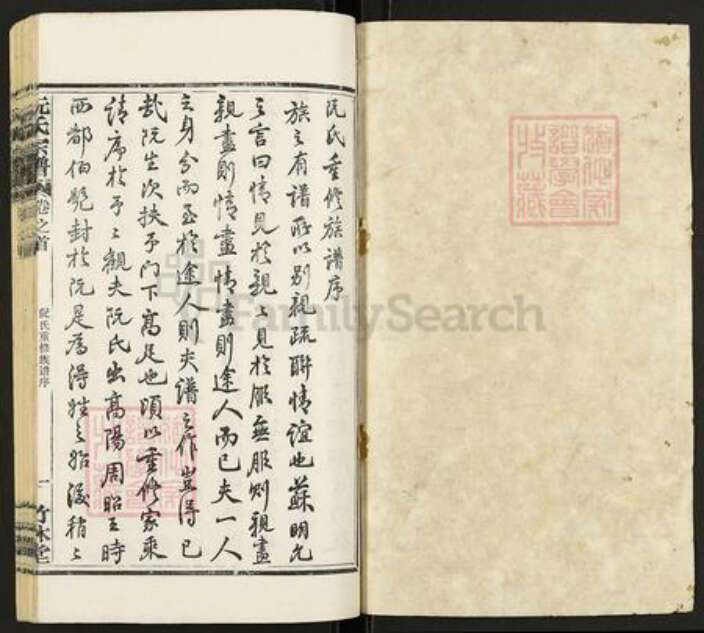 阮氏重修族譜序
族之有譜所以别親疏聯情誼也蘇明允
之言曰情見於親親見於服無服則親盡
親盡則情盡情盡則途人而已夫一人
之身分而至於途人則夫譜之作豈得已
哉阮生次扶予门下髙足也頃以重修家乘
請序於予予觀夫阮氏出髙陽周昭王時
西都伯髡封於阮是為得姓之始後稍稍
阮氏宗譜
卷之首
阮氏重修族谱序
一
竹林堂
譜學會
藏
FamilySearch